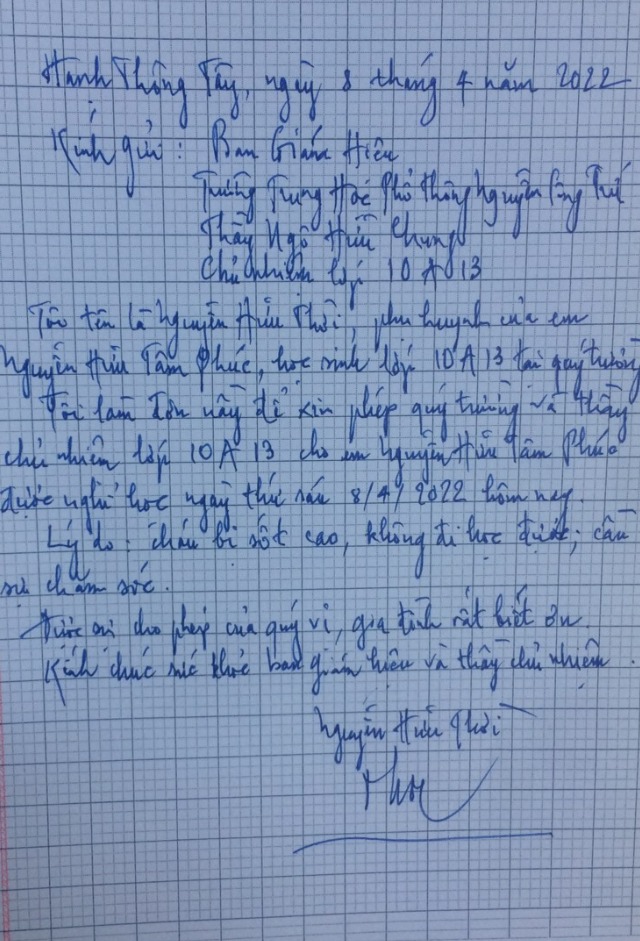 Hạnh Thông Tây, ngày 8 tháng 4 năm 2022
Kính gửi : Ban Giám Hiệu
Trường Trung Học Phổ thông Nguyễn Công Trứ
Thầy Ngô Hữu Chung
Chủ nhiệm lớp 10 A 13
Tôi tên là Nguyễn Hữu Thời, phụ huynh của em
Nguyễn Hữu Tâm Phúc, học sinh lớp 10 A 13 tại quý trường
Tôi làm đơn này để xin phép quý trường và thầy
chủ nhiệm lớp 10 A 13 cho em Nguyễn Hữu Tâm Phúc
được nghỉ học ngày thứ sáu 8/4/2022 hôm nay.
Lý do : cháu bị sốt cao, không đi học được; cần
sự chăm sóc.
Được sự cho phép của quý vị, gia đình rất biết ơn.
Kính chúc sức khỏe ban giám hiệu và thầy chủ nhiệm.
Nguyễn Hữu Thời